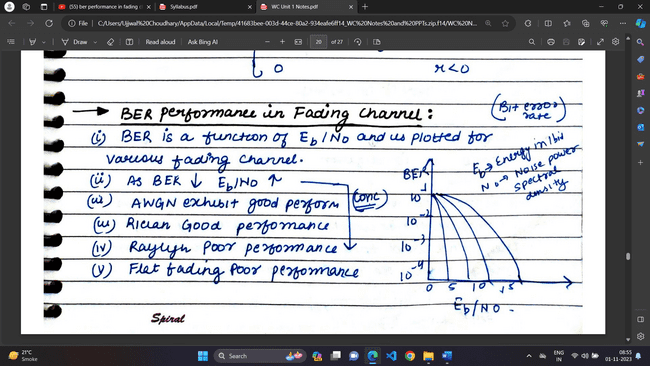 (53) ber performance in fading c
Syllabus.pdf
WC Unit 1 Notes.pdf
File
C:/Users/Ujjwal%20Choudhary/AppData/Local/Temp/41683bee-003d-44ce-80a2-934eafe6ff14_WC%20Notes%20and%20PPTs.zip.f14/WC%20N...
Draw
Read aloud
Ask Bing AI
20 of 27
0 r<0
→ BER performance in Fading Channel : (Bit error rate)
(i) BER is a function of Eb/No and is plotted for
various fading channel.
(ii) As BER ↓ Eb/No ↑
(iii) AWGN exhibit good perform
(iii) Rician Good performance
(iv) Raylygh Poor performance
(v) Flat fading Poor performance
Conc
Eb → Energy in 1 bit
No → Noise power
spectral
density
BER
10⁻¹
10⁻²
10⁻³
10⁻⁴
0 5 10 15
Eb/NO
Spiral
21°C
Smoke
Search
ENG
IN
08:55
01-11-2023